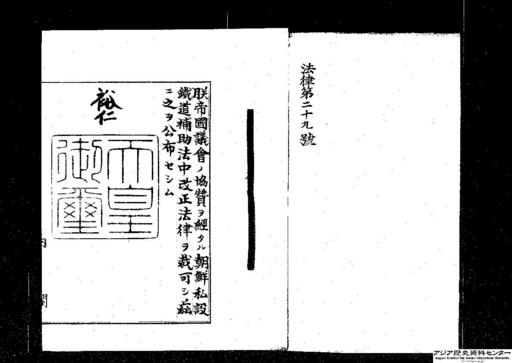 法律第二十九號
朕帝國議會ノ協贊ヲ經タル朝鮮私設
鐵道補助法中改正法律ヲ裁可シ茲
ニ之ヲ公布セシム
裕仁
天皇
御璽
内閣
アジア歴史資料センター
Japan Center for Asian Historical Records